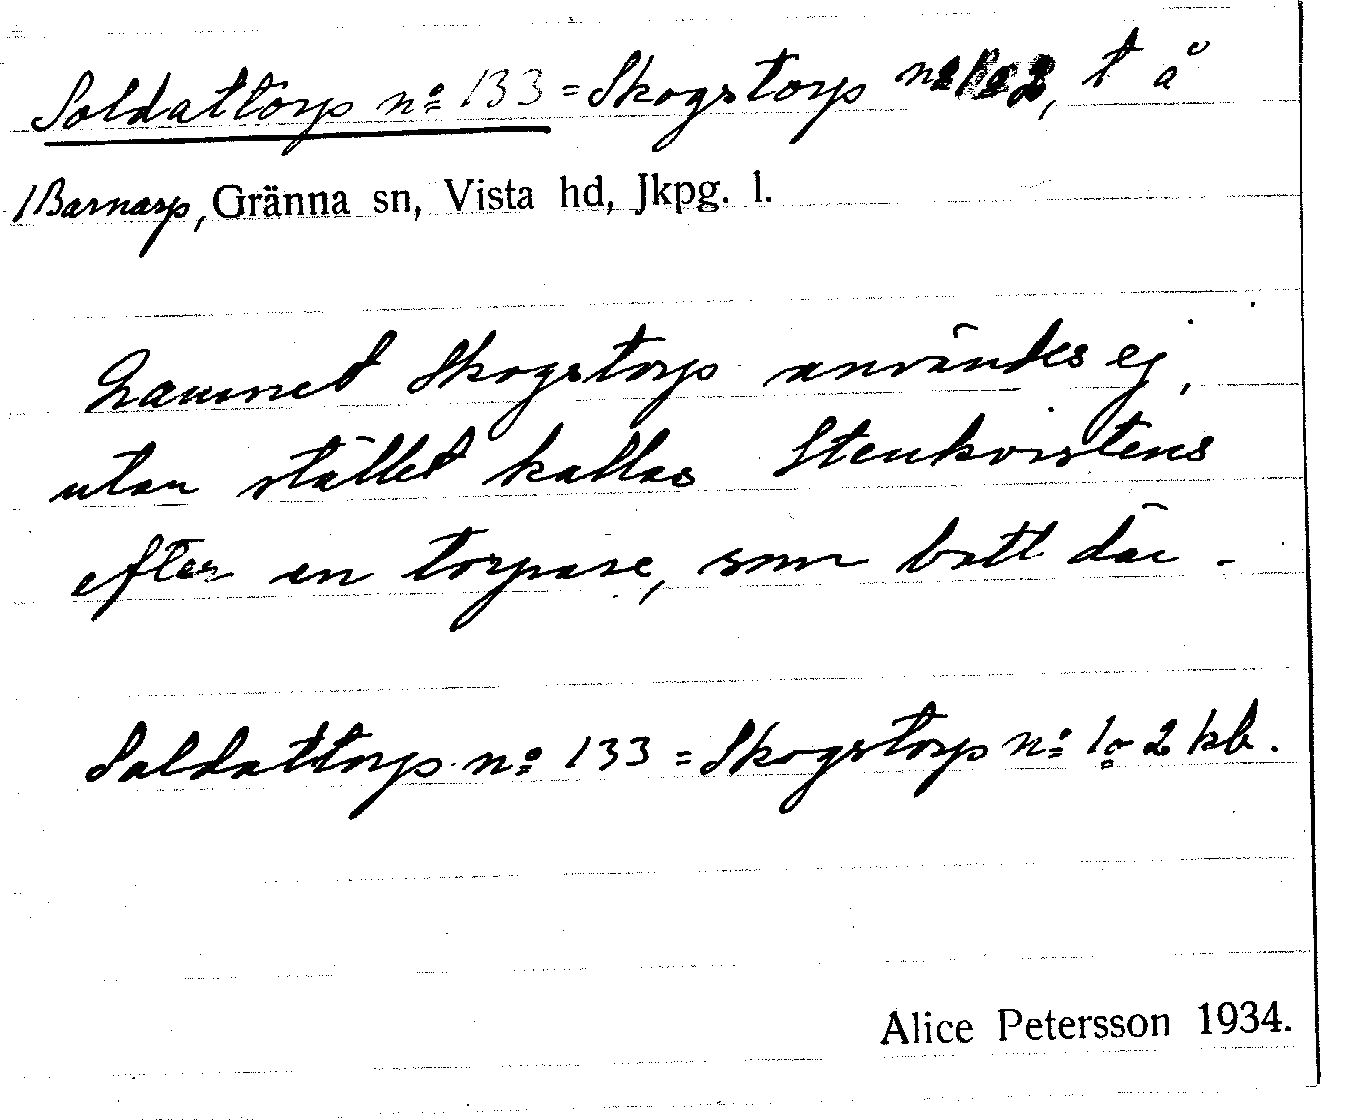 Soldattorp nº 133 = Skogstorp nº 1 o 2, t å
/Barnarp, Gränna sn, Vista hd, Jkpg. l.
Namnet Skogstorp användes ej,
utan stället kallas Stenkvistens
efter en torpare, som bott där.
Soldattorp nº 133 = Skogstorp nº 1 o 2 kb.
Alice Petersson 1934.